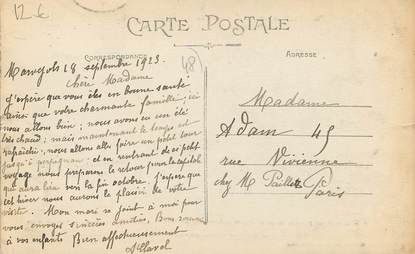 12 €
CARTE POSTALE
CORRESPONDANCE
ADRESSE
48
18 septembre 1923.
Chère Madame
J'espère que vous êtes en bonne santé
ainsi que votre charmante famille; ici
nous allons bien; nous avons eu un été
très chaud; mais maintenant le temps est
rafraichi; nous allons faire un petit tour
jusqu'à perpignan; et en rentrant de ce petit
voyage nous preparons le retour pour la capitale
qui aura lieu vers la fin octobre. J'espère que
cet hiver nous aurons le plaisir de votre
visite. Mon mari se joint à moi pour
vous envoyer sincères amitiés. Bons
à vos enfants Bien affectueusement
Madame
Adam 45
rue Vivienne
chez M.
Paris